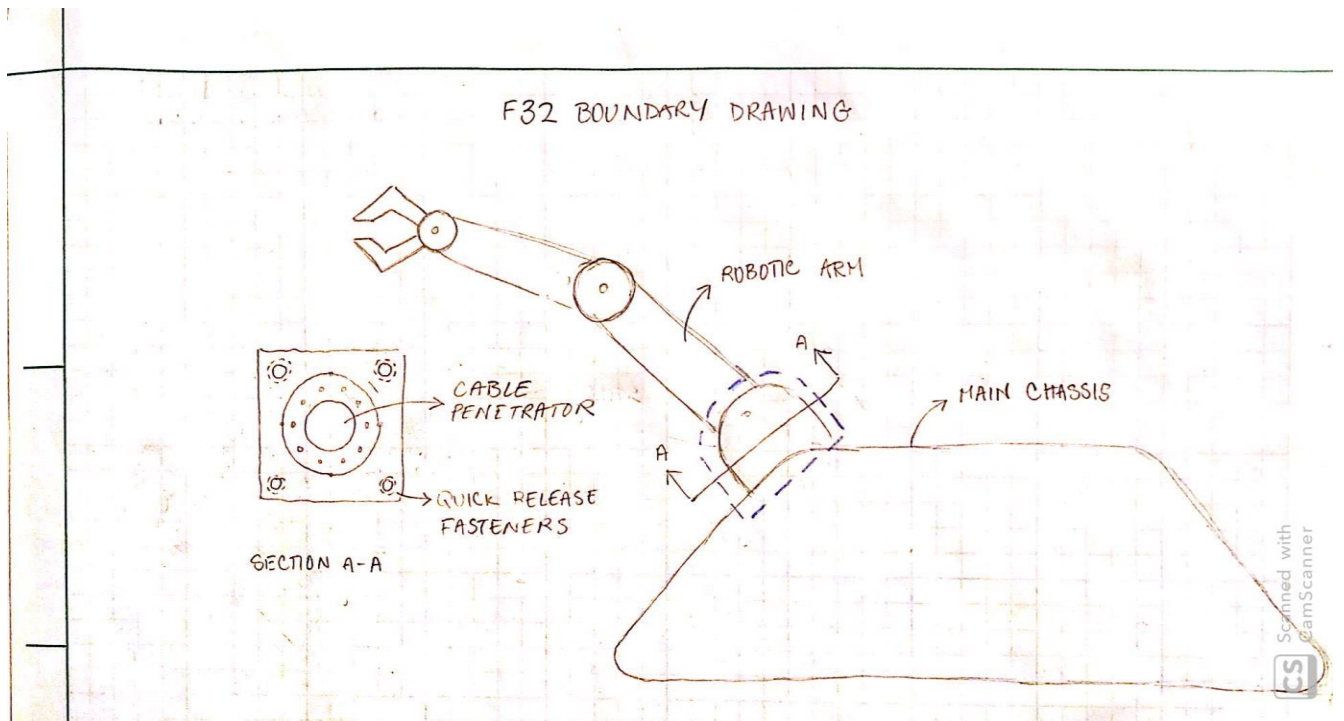 F32 BOUNDARY DRAWING
ROBOTIC ARM
A
MAIN CHASSIS
CABLE
PENETRATOR
A
QUICK RELEASE
FASTENERS
SECTION A-A
CS Scanned with
CamScanner